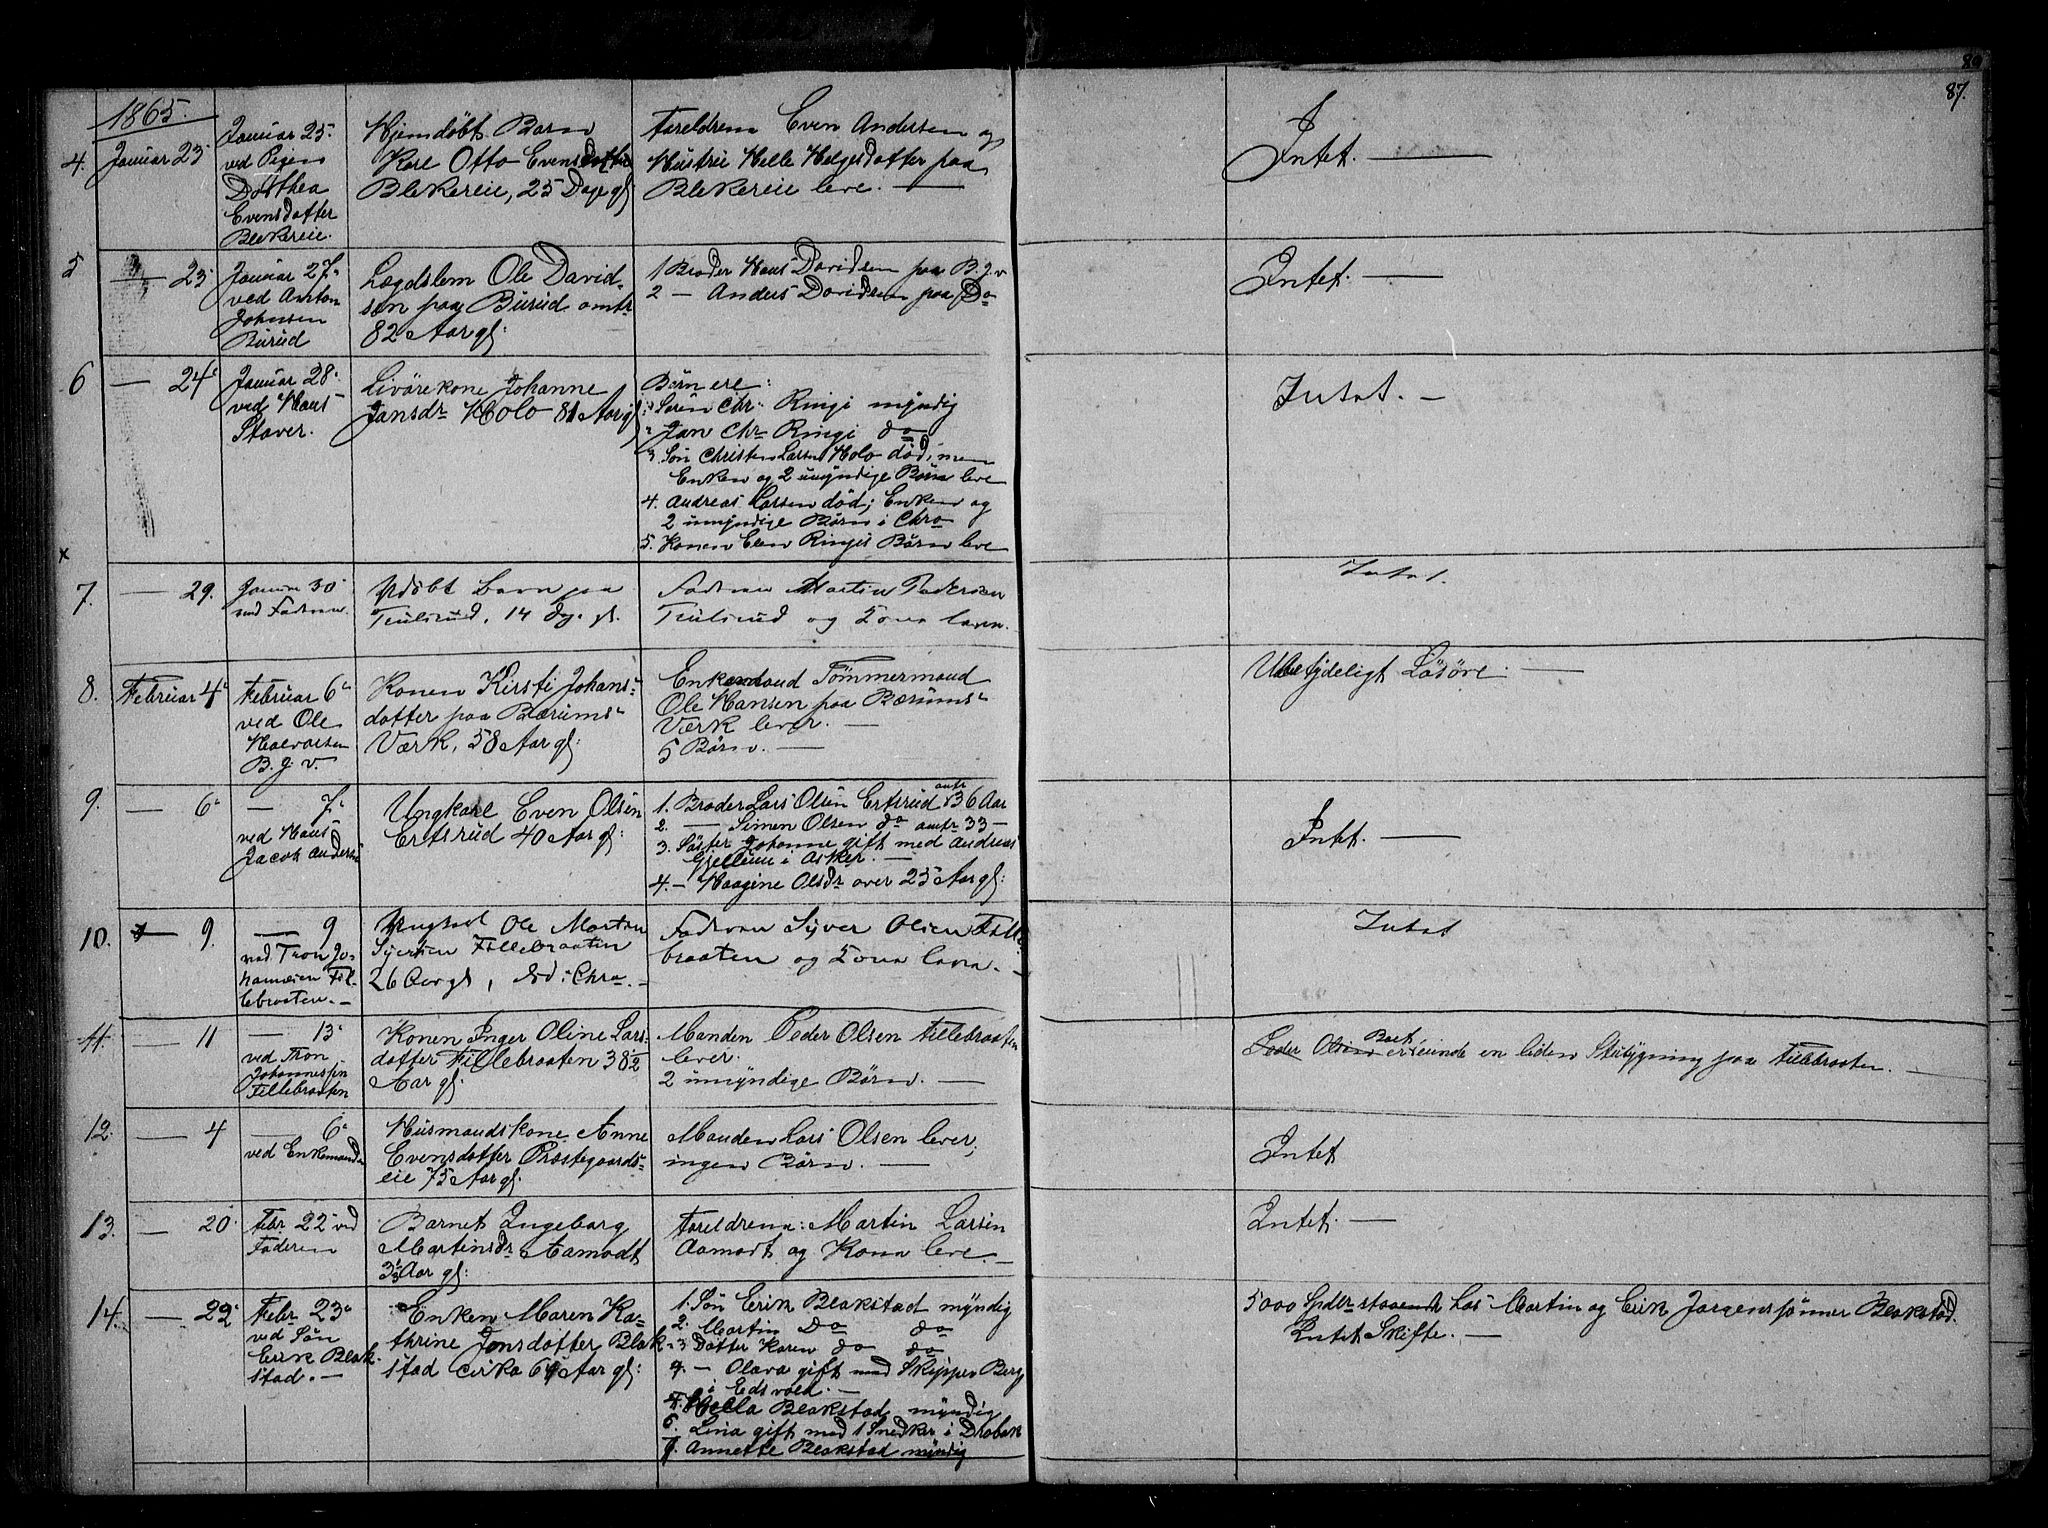 87.
1865.
4.
Januar 23
Januar 25
ved Pigen
Dorthea
Evensdatter
Blekereie.
Hjemdøbt Barn
Karl Otto Evensdatter
Blekereie, 25 Dage gl
Foreldrene Even Andersen og
Hustrue Helle Helgesdatter paa
Blekereie leve. —
Intet. —
5
— 23
Januar 27
ved Anton
Johnsen
Burud
Lægdslem Ole David-
sen paa Burud omtr
82 Aar gl:
1 Broder Hans Davidsen paa B.j.v
2 — Anders Davidsen paa Do
Intet. —
6
— 24
Januar 28
ved Hans
Staver.
Livørekone Johanne
Jansdr Holo 81 Aar gl
Børn ere:
Søren Chr. Ringi myndig
Jan Chr Ringi do
3. Søn Christen Larsen Holo død, men
Enken og 2 umyndige Børn leve
4. Andreas Larsen død; Enken og
2 umyndige Børn i Chra
5. Konen Elen Ringis Børn leve
Intet. —
x
7.
— 29.
Januar 30
ved Faderen.
Udøbt Barn paa
Triulsrud, 14 Dg. gl.
Faderen Martin Pedersen
Triulsrud og Kone leve.
Intet.
8.
Februar 4
Februar 6
ved Ole
Halvorsen
B. j. v.
Konen Kirsti Johans-
datter paa Bærums-
Værk, 58 Aar gl:
Enkemand Tømmermand
Ole Hansen paa Bærums-
Værk lever. —
5 Børn. —
Ubetydeligt Løsøre. —
9.
— 6
— 7
ved Hans
Jacob Andersen
Ungkarl Even Olsen
Ertsrud 40 Aar gl:
1. Broder Lars Olsen Ertsrud omtr 36 Aar
2. — Simen Olsen do omtr 33 —
3. Søster Johanne gift med Andreas
Gjellum i Asker. —
4. — Haagine Olsdr over 25 Aar gl:
Intet. —
10.
— 9.
— 9
ved Tron Jo-
hannesen Fil-
lebraaten. —
Ungkarl Ole Morten
Syversen Fillebraaten
26 Aar gl, død i Chra. —
Faderen Syver Olsen Fille-
braaten og Kone leve. —
Intet
11.
— 11
— 13
ved Tron
Johannessen
Fillebraaten
Konen Inger Oline Lars-
datter Fillebraaten 38 1/2
Aar gl:
Manden Peder Olsen Fillebraaten
lever.
2 umyndige Børn. —
Peder Olsen Boet eiende en liden Stubygning paa Fillebraaten. —
12.
— 4
— 6
ved Enkemanden
Husmandskone Anne
Evensdatter Præstegaards-
eie 75 Aar gl:
Manden Lars Olsen lever,
ingen Børn. —
Intet
13.
— 20
Febr 22 ved
Faderen
Barnet Ingeborg
Martinsdr Aamodt
3 1/3 Aar gl:
Foreldrene: Martin Larsen
Aamodt og Kone leve. —
Intet. —
14.
— 22
Febr 23
ved Søn
Erik Blak-
stad. —
Enken Maren Ka-
thrine Jonsdatter Blak-
stad cirka 64 Aar gl:
1. Søn Erik Blakstad myndig
2. Martin Do do
3 Datter Karen do do
4. — Olava gift med Skipper Berg
i Edsvold. —
5. Hella Blakstad myndig
6. Lina gift med 1 Snedker i Drøbak
7. Annette Blakstad myndig
5000 Spdr staaende hos Martin og Erik Jørgenssønner Blakstad.
Intet Skifte. —